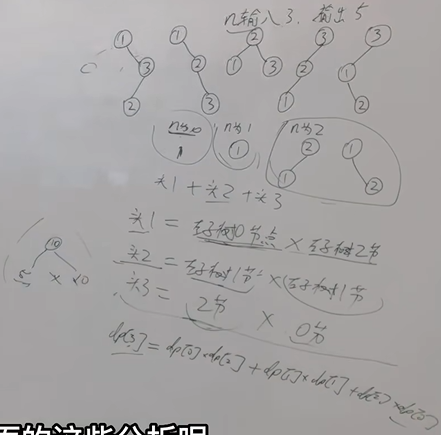 n输入3，输出5
① ① ② ③ ③
③ ② ① ③ ② ①
② ③ ① ②
n为0 n为1 n为2
1 ① ② ①
① ②
头1+头2+头3
头1 = 左子树0节点 × 右子树2节
头2 = 左子树1节 × 右子树1节
头3 = 2节 × 0节
10
5 × 20
dp[3] = dp[0]·dp[2] + dp[1]×dp[1] + dp[2]×dp[0]
面的这些分析呢